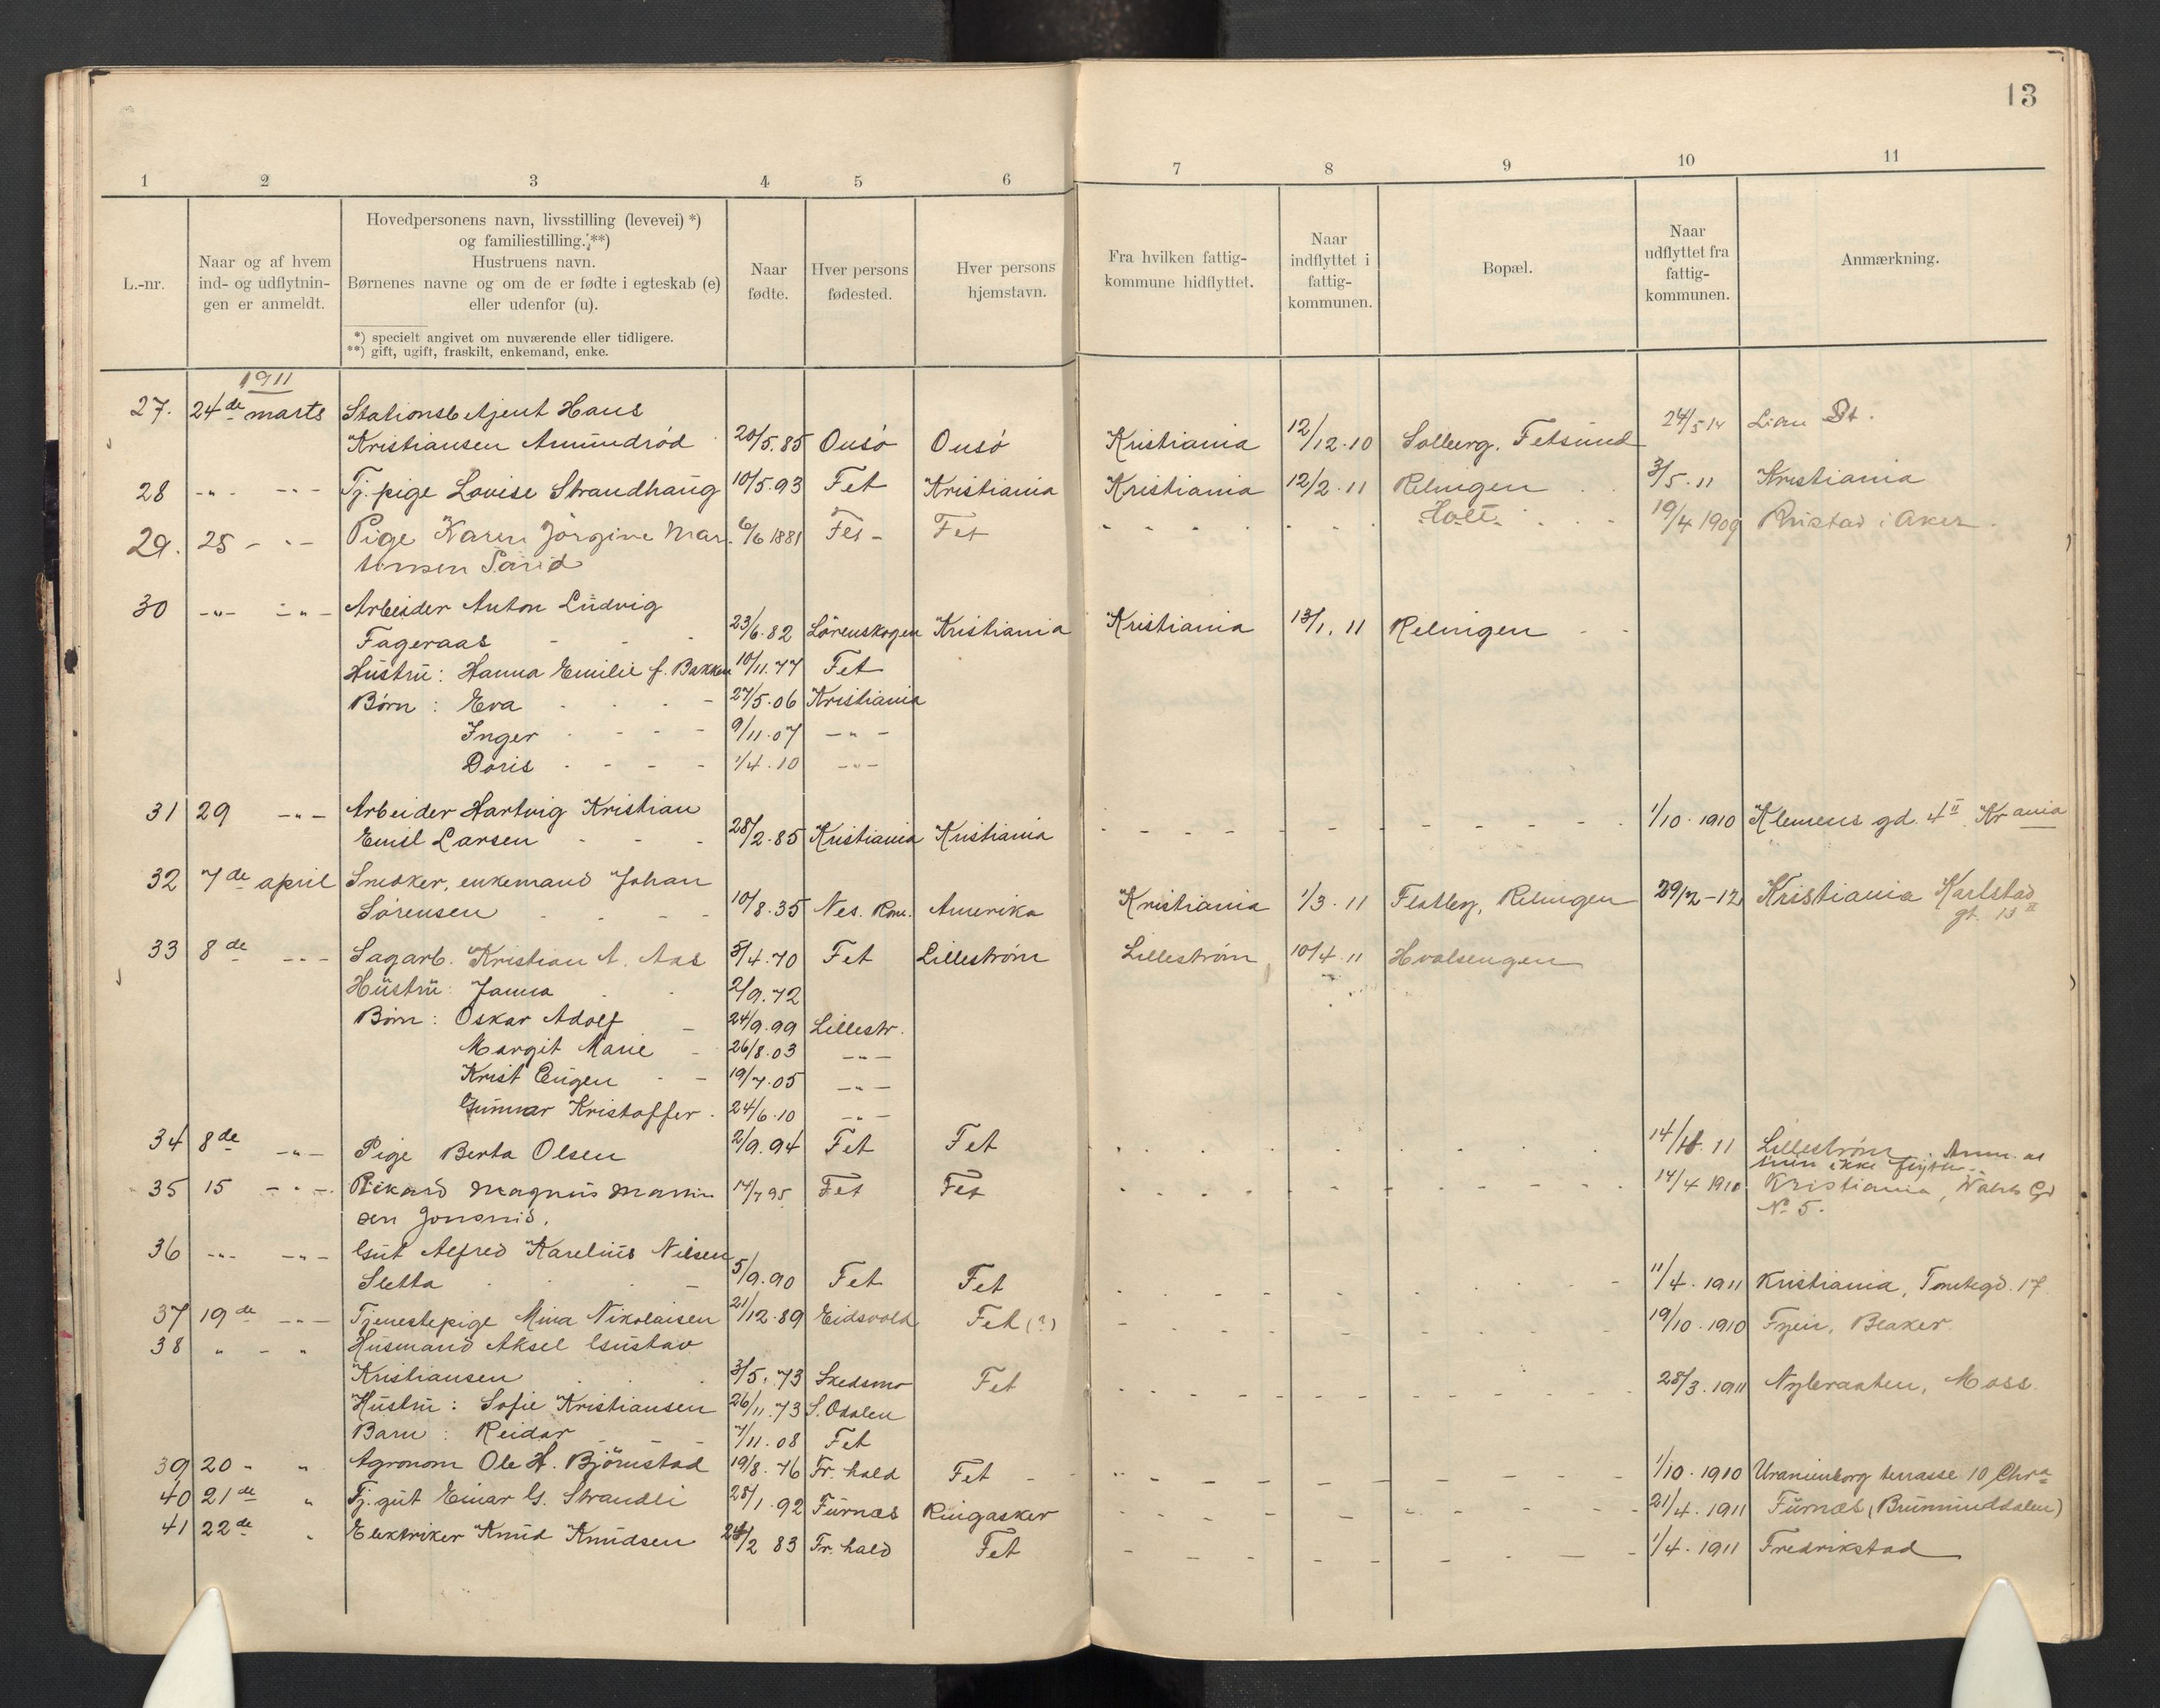 13
1 2 3 4 5 6 7 8 9 10 11
L.-nr.
Naar og af hvem
ind- og udflytnin-
gen er anmeldt.
Hovedpersonens navn, livsstilling (levevei) *)
og familiestilling. **)
Hustruens navn.
Børnenes navne og om de er fødte i egteskab (e)
eller udenfor (u).
*) specielt angivet om nuværende eller tidligere.
**) gift, ugift, fraskilt, enkemand, enke.
Naar
fødte.
Hver persons
fødested.
Hver persons
hjemstavn.
Fra hvilken fattig-
kommune hidflyttet.
Naar
indflyttet i
fattig-
kommunen.
Bopæl.
Naar
udflyttet fra
fattig-
kommunen.
Anmærkning.
1911
27. 24de marts Stationsbetjent Hans
Kristiansen Amundrød 20/5.85 Onsö Onsö Kristiania 12/12.10 Solberg, Fetsund 24/5 14 Lian St.
28 -"- -"- Tj. pige Lovise Strandhaug 10/5.93 Fet Kristiania Kristiania 12/2.11 Relingen 3/5.11 Kristiania
29. 25 -"- Pige Karen Jörgine Mar- 6/6 1881 Fet Fet Holt 19/4 1909 Rustad i Aker
tinsen
30 -"- -"- Arbeider Anton Ludvig
Fageraas 23/6.82 Lörenskogen Kristiania Kristiania 13/1.11 Relingen
Hustru: Hanna Emilie f. Bakken 10/11.77 Fet
Børn: Eva 27/5.06 Kristiania
Inger 9/11.07 -"-
Doris 1/4.10 -"-
31 29 -"- Arbeider Hartvig Kristian
Emil Larsen 28/2.85 Kristiania Kristiania 1/10.1910 Klemens gd. 4 II Krania
32 7de april Snedker, enkemand Johan
Sörensen 10/8.35 Nes. Rom. Amerika Kristiania 1/3.11 Flatby, Relingen 29/12-12 Kristiania Karlstad
gt. 13 II
33 8de -"- Sagarb. Kristian A. Aas 3/4.70 Fet Lilleström Lilleström 10/4.11 Hvalsengen
Hustru: Janna 2/9.72
Børn: Oskar Adolf 24/9.99 Lillestr.
Margit Marie 26/8.03 -"-
Krist Eugen 19/7.05 -"-
Gunnar Kristoffer 24/6.10 -"-
34 8de -"- Pige Berta Olsen 2/9.94 Fet Fet 14/ 11 Lilleström. Anm. at
ikke
35 15 -"- Rikard Magnus 14/7 95 Fet Fet 14/4 1910 Kristiania, Gd
sen No 5.
36 -"- -"- Gut Alfred Karelius Nilsen
Sletta 5/9.90 Fet Fet 11/4.1911 Kristiania, Tomtegd. 17
37 19de -"- Tjenestepige Mina Nikolaisen 21/12.89 Eidsvold Fet (?) 19/10.1910 Blaker
38 " - " Husmand Aksel Gustav
Kristiansen 3/5.73 Skedsmo Fet 28/3.1911 Nybraaten, Moss
Hustru: Sofie Kristiansen 26/11.73 S. Odalen
Barn: Reidar 7/11.08 Fet
39 20 - " Agronom Ole H. Björnstad 19/8.76 Fr. hald Fet 1/10.1910 Uranienborg terrasse 10, Chra
40 21de " Tj. gut Einar G. Strandli 28/1.92 Furnæs Ringsaker 21/4.1911 Furnæs (Brumunddalen)
41 22de " Elektriker Knud Knudsen 2 83 Fr. hald Fet 1/4.1911 Fredrikstad